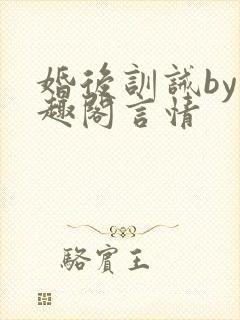 婚後訓誡by
趣閣言情
駱賓王